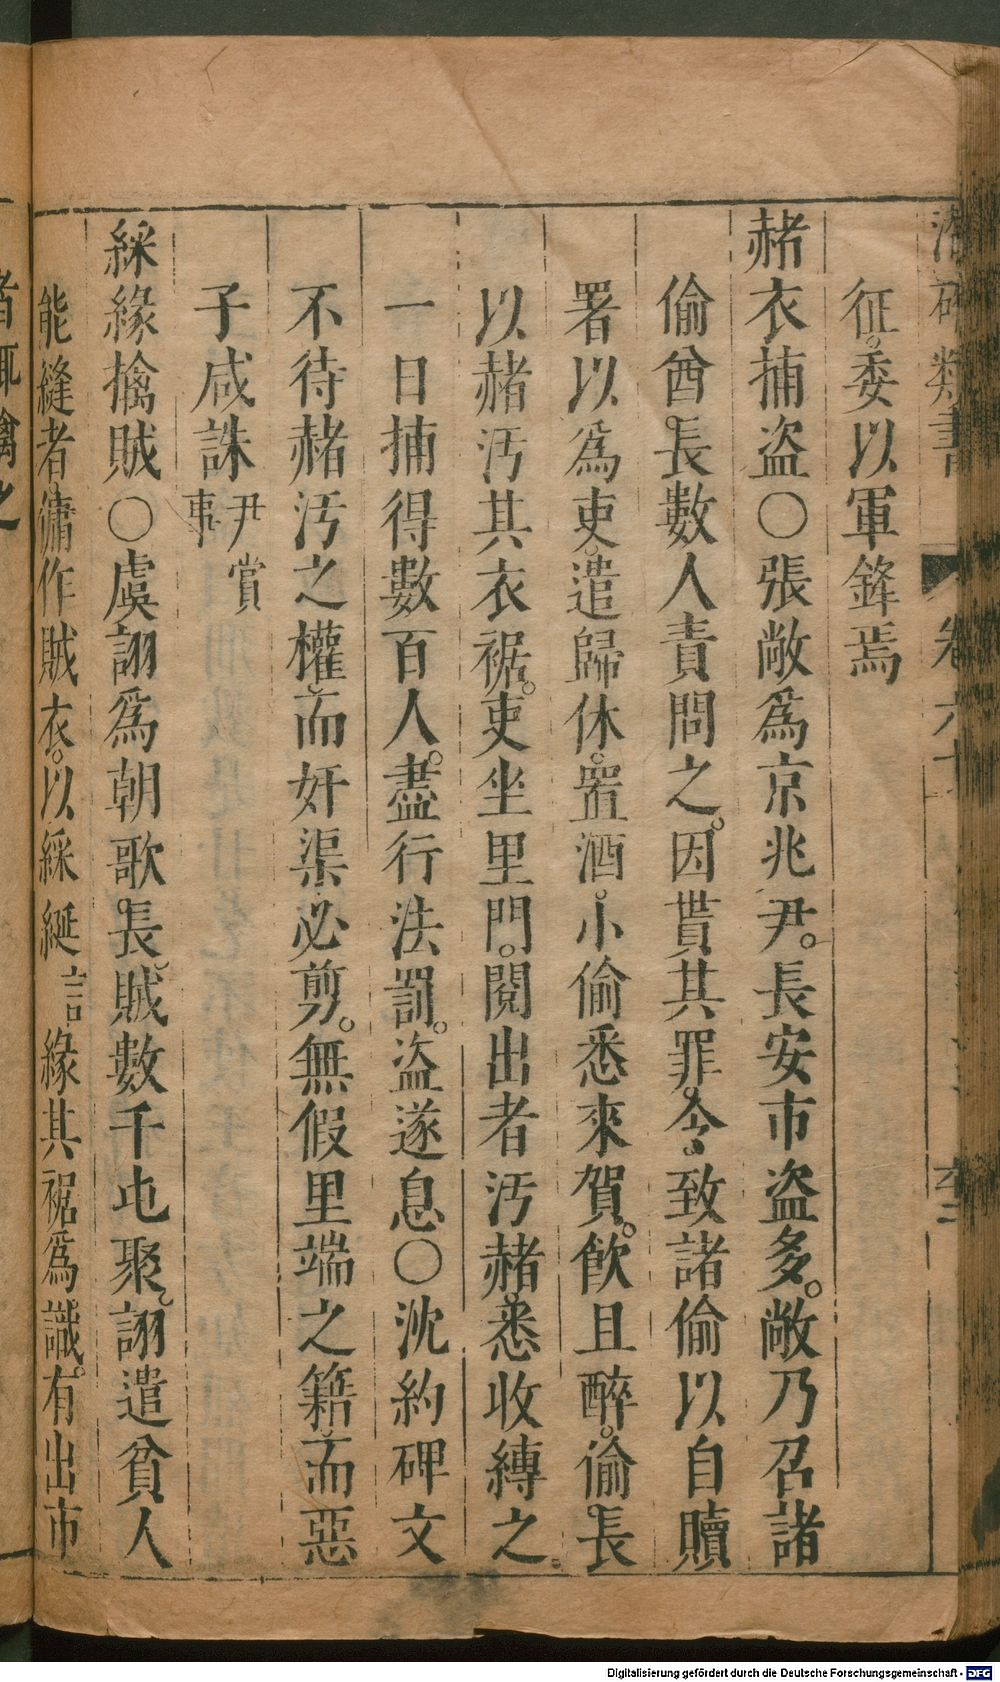 類書 卷六十
征委以軍鋒焉
赭衣捕盜○張敞爲京兆尹。長安市盜多。敞乃召諸
偷酋長數人責問之。因貰其罪。令致諸偷以自贖
署以爲吏。遣歸休。置酒。小偷悉來賀。飲且醉。偷長
以赭汚其衣裾。吏坐里門。閱出者汚赭。悉收縛之。
一日捕得數百人。盡行法罰。盜遂息○沈約碑文
不待赭汚之權。而奸渠必剪。無假里端之籍。而惡
子咸誅 尹賞事
綵緣擒賊○虞詡爲朝歌長。賊數千屯聚。詡遣貧人
能縫者傭作賊衣。以綵綖 音 緣其裾爲識。有出市
者輒擒之
Digitalisierung gefördert durch die Deutsche Forschungsgemeinschaft - DFG